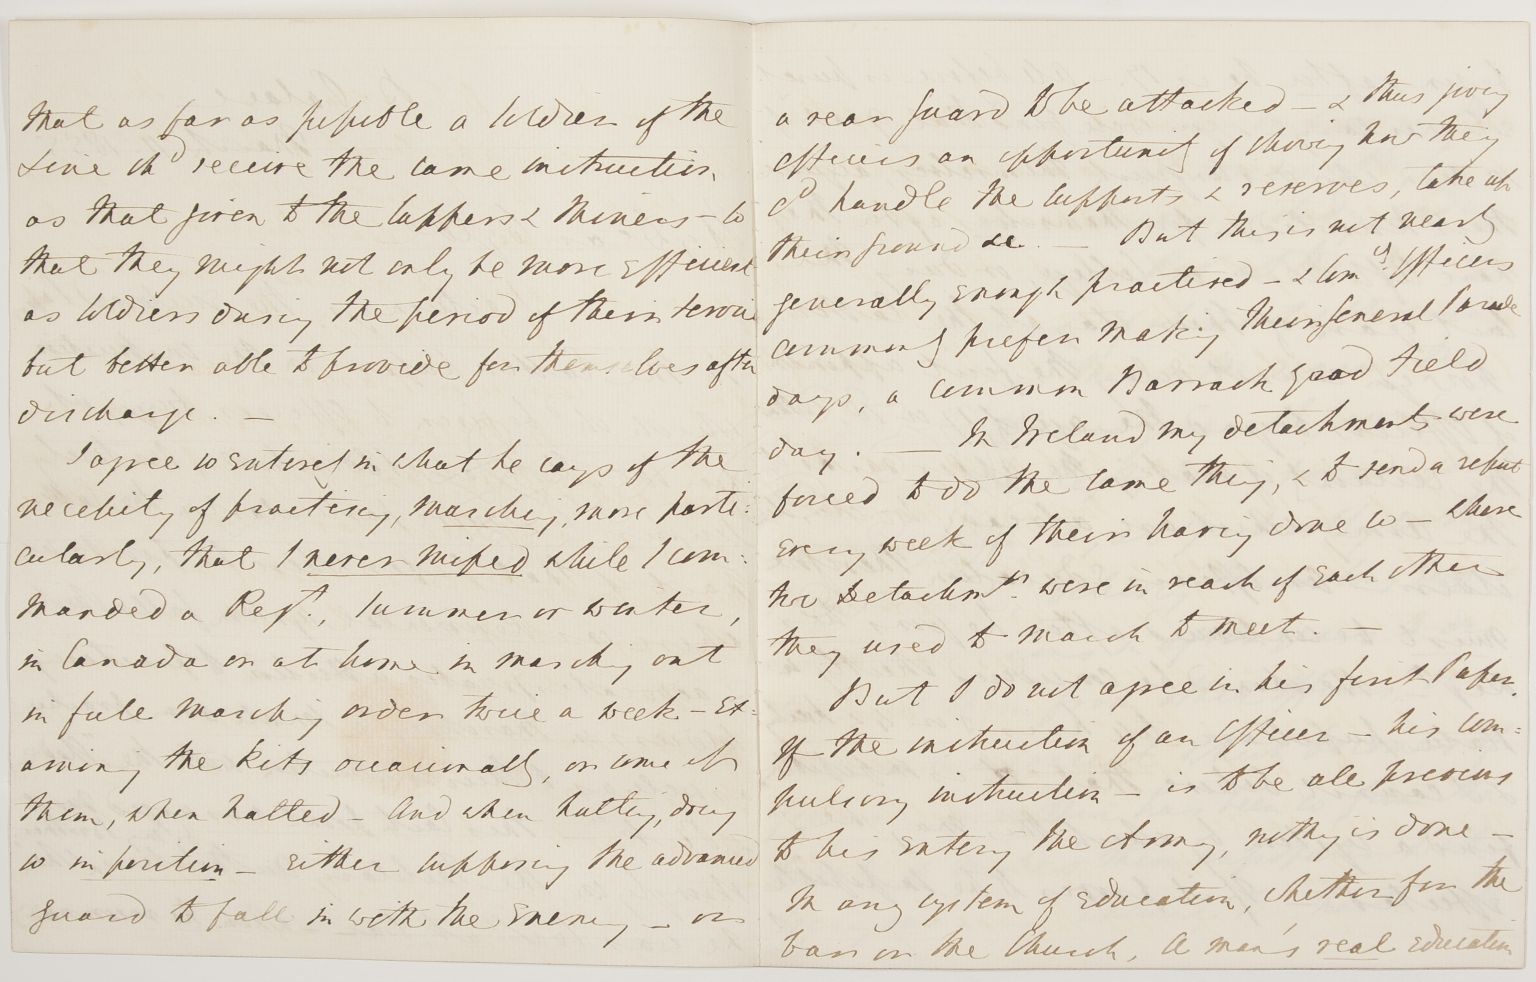 that as far as possible a Soldier of the
Line shd receive the same instruction
as that given to the Sappers & Miners – so
that they might not only be more efficient
as Soldiers during the period of their service
but better able to provide for themselves after
discharge. –
I agree so entirely in what he says of the
necessity of practising, marching, more parti:
cularly, that I never missed while I com:
manded a Regt., Summer or winter,
in Canada or at home in marching out
in full marching order twice a week – Ex:
amining the kits occasionally, or some of
them, when halted – And when halting, doing
so in position – Either supposing the advanced
guard to fall in with the Enemy – or
a rear guard to be attacked – & thus giving
officers an opportunity of shewing how they
cd handle the supports & reserves, take up
their ground &c. – But this is not nearly
generally enough practised – & Comg. Officers
commonly prefer making their General Parade
days, a common Barrack Yard Field
day. – In Ireland my detachments were
forced to do the same thing, & to send a report
every week of their having done so – Where
two Detachmts. were in reach of each other
they used to march to meet. –
But I do not agree in his first Paper.
If the instruction of an Officer – his com:
pulsory instruction – is to be all previous
to his entering the Army, nothing is done –
In any system of Education, whether for the
bar or the Church, A man's real education